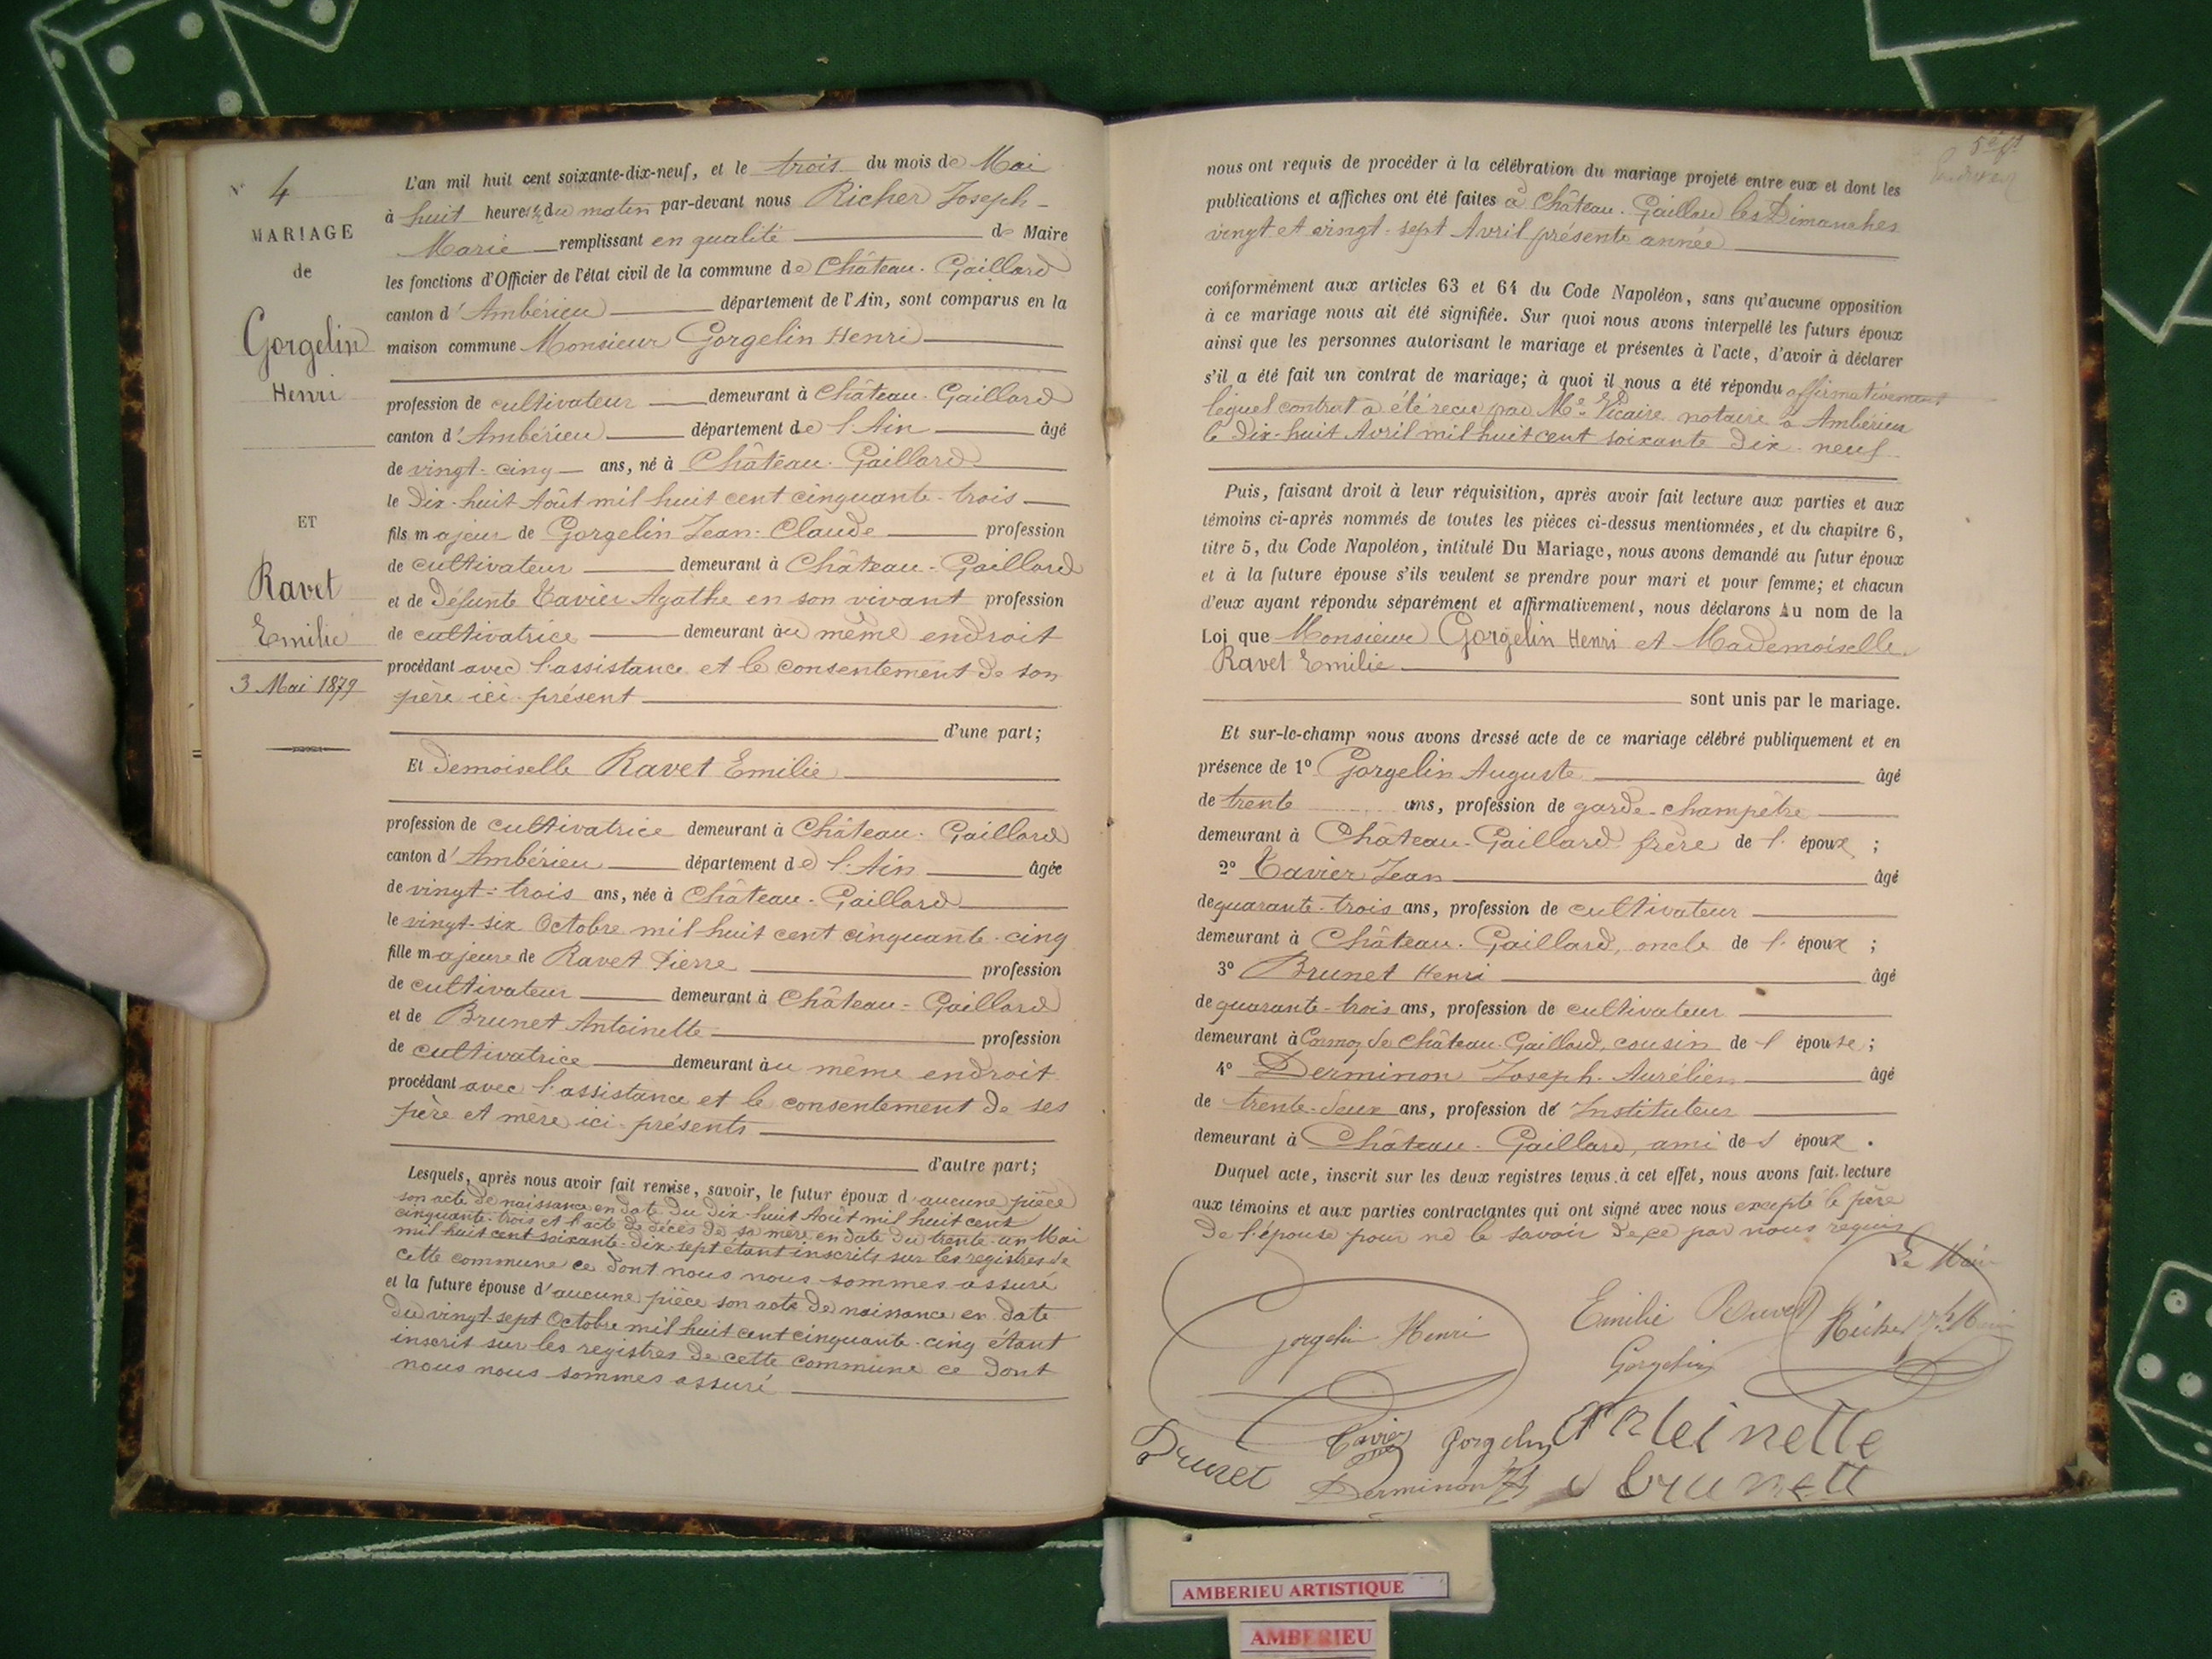 N° 4
MARIAGE
de
Gorgelin
Henri
ET
Ravet
Emilie
3 Mai 1879
L'an mil huit cent soixante-dix-neuf, et le trois du mois de Mai
à huit heures ½ du matin par-devant nous Richer Joseph-
Marie remplissant en qualité de Maire
les fonctions d'Officier de l'état civil de la commune de Château-Gaillard
canton d'Ambérieu département de l'Ain, sont comparus en la
maison commune Monsieur Gorgelin Henri
profession de cultivateur demeurant à Château-Gaillard
canton d'Ambérieu département de l'Ain âgé
de vingt-cinq ans, né à Château-Gaillard
le Dix-huit Août mil huit cent cinquante-trois
fils majeur de Gorgelin Jean-Claude profession
de cultivateur demeurant à Château-Gaillard
et de Défunte Tavier Agathe en son vivant profession
de cultivatrice demeurant au même endroit
procédant avec l'assistance et le consentement de son
père ici-présent
d'une part;
Et Demoiselle Ravet Emilie
profession de cultivatrice demeurant à Château-Gaillard
canton d'Ambérieu département de l'Ain âgée
de vingt-trois ans, née à Château-Gaillard
le vingt-six Octobre mil huit cent cinquante-cinq
fille majeure de Ravet Pierre profession
de cultivateur demeurant à Château-Gaillard
et de Brunet Antoinette profession
de cultivatrice demeurant au même endroit
procédant avec l'assistance et le consentement de ses
père et mère ici-présents
d'autre part;
Lesquels, après nous avoir fait remise, savoir, le futur époux d'aucune pièce
son acte de naissance en date du Dix-huit Août mil huit cent
cinquante-trois et l'acte de décès de sa mère en date du trente-un Mai
mil huit cent soixante-dix-sept étant inscrits sur les registres de
cette commune ce dont nous nous sommes assuré
et la future épouse d'aucune pièce son acte de naissance en date
du vingt-sept Octobre mil huit cent cinquante-cinq étant
inscrit sur les registres de cette commune ce dont
nous nous sommes assuré
nous ont requis de procéder à la célébration du mariage projeté entre eux et dont les
publications et affiches ont été faites à Château-Gaillard les Dimanches
vingt et vingt-sept Avril présente année
conformément aux articles 63 et 64 du Code Napoléon, sans qu'aucune opposition
à ce mariage nous ait été signifiée. Sur quoi nous avons interpellé les futurs époux
ainsi que les personnes autorisant le mariage et présentes à l'acte, d'avoir à déclarer
s'il a été fait un contrat de mariage; à quoi il nous a été répondu affirmativement
lequel contrat a été recu par Me Vicaire notaire à Ambérieu
le Dix-huit Avril mil huit cent soixante Dix-neuf
Puis, faisant droit à leur réquisition, après avoir fait lecture aux parties et aux
témoins ci-après nommés de toutes les pièces ci-dessus mentionnées, et du chapitre 6,
titre 5, du Code Napoléon, intitulé Du Mariage, nous avons demandé au futur époux
et à la future épouse s'ils veulent se prendre pour mari et pour femme; et chacun
d'eux ayant répondu séparément et affirmativement, nous déclarons Au nom de la
Loi que Monsieur Gorgelin Henri et Mademoiselle
Ravet Emilie
sont unis par le mariage.
Et sur-le-champ nous avons dressé acte de ce mariage célébré publiquement et en
présence de 1° Gorgelin Auguste âgé
de trente ans, profession de garde-champêtre
demeurant à Château-Gaillard frère de l'époux;
2° Tavier Jean âgé
de quarante-trois ans, profession de cultivateur
demeurant à Château-Gaillard, oncle de l'époux;
3° Brunet Henri âgé
de quarante-trois ans, profession de cultivateur
demeurant à Cormoz de Château-Gaillard, cousin de l'épouse;
4° Derminon Joseph-Aurélien âgé
de trente-deux ans, profession de Instituteur
demeurant à Château-Gaillard, ami de l'époux.
Duquel acte, inscrit sur les deux registres tenus à cet effet, nous avons fait lecture
aux témoins et aux parties contractantes qui ont signé avec nous excepté le père
de l'épouse pour ne le savoir de ce par nous requis
Le Maire
gorgelin Henri
Emilie Ravet
Gorgelin
Tavier
gorgelin
Antoinette
Brunet
Derminon
brunett
AMBERIEU ARTISTIQUE
AMBERIEU